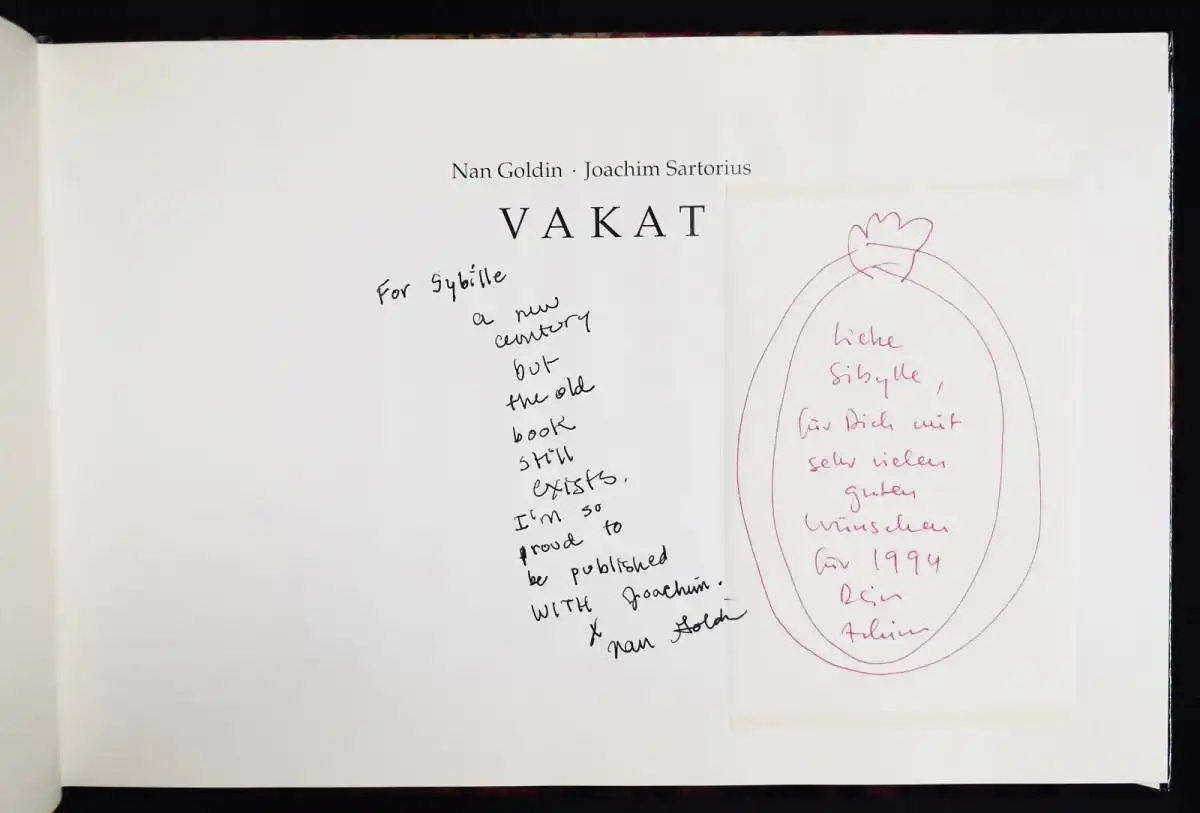 Nan Goldin · Joachim Sartorius
VAKAT
For Sybille
a new
century
but
the old
book
still
exists.
I'm so
proud to
be published
WITH Joachim.
x
Nan Goldin
Liebe
Sibylle,
für Dich mit
sehr vielen
guten
Wünschen
für 1994
Dein
Achim